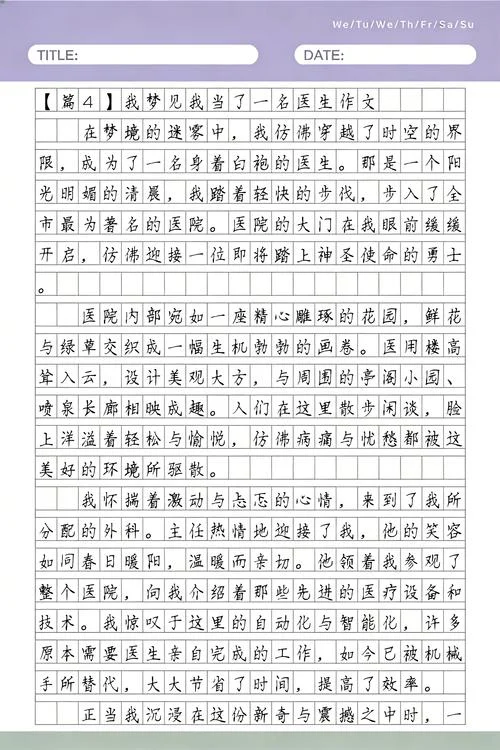 We/Tu/We/Th/Fr/Sa/Su
TITLE: DATE:
【篇4】我梦见我当了一名医生作文
在梦境的迷雾中，我仿佛穿越了时空的界
限，成为了一名身着白袍的医生。那是一个阳
光明媚的清晨，我踏着轻快的步伐，步入了全
市最为著名的医院。医院的大门在我眼前缓缓
开启，仿佛迎接一位即将踏上神圣使命的勇士
。
医院内部宛如一座精心雕琢的花园，鲜花
与绿草交织成一幅生机勃勃的画卷。医用楼高
耸入云，设计美观大方，与周围的亭阁小园、
喷泉长廊相映成趣。人们在这里散步闲谈，脸
上洋溢着轻松与愉悦，仿佛病痛与忧愁都被这
美好的环境所驱散。
我怀揣着激动与忐忑的心情，来到了我所
分配的外科。主任热情地迎接了我，他的笑容
如同春日暖阳，温暖而亲切。他领着我参观了
整个医院，向我介绍着那些先进的医疗设备和
技术。我惊叹于这里的自动化与智能化，许多
原本需要医生亲自完成的工作，如今已被机械
手所替代，大大节省了时间，提高了效率。
正当我沉浸在这份新奇与震撼之中时，一